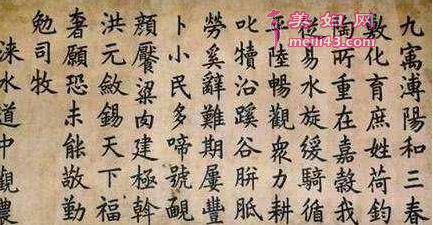 九寓溥陽和三春
敷化育庶姓荷鈞
陶所重在嘉穀我
從易水旋緩騎循
平陸暢觀衆力耕
叱犢沿蹊谷胼胝
勞奚辭難期屢豐
卜小民多啼號靦
顏饜粱肉建極斡
洪元斂錫天下福
奢願恐未能敬勤
勉司牧
淶水道中觀農
美妇网
meili43.com